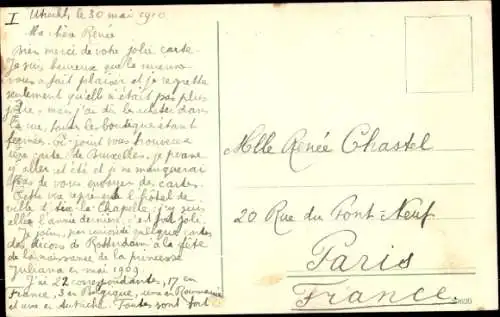 I
Utrecht, le 30 mai 1910
Ma chère Renée
Bien merci de votre jolie carte.
Je suis heureux que la mienne
vous a fait plaisir et je regrette
seulement qu'elle n'était pas plus
jolie, mais j'ai dû l'acheter dans
la rue, toutes les boutiques étant
fermées. Ci-joint vous trouverez
une carte de Bruxelles, je pense
y aller cet été et je ne manquerai
pas de vous envoyer des cartes.
Cette vue représente l'hôtel de
ville d'Aix la Chapelle, j'y suis
allé l'année dernière, c'est fort joli.
Je joins, par curiosité quelques cartes
des décors de Rotterdam à la fête
de la naissance de la princesse
Juliana en mai 1909.
J'ai 22 correspondantes, 17 en
France, 3 en Belgique, une en Roumanie
et une en Autriche. Toutes sont fort
Mlle Renée Chastel
20 Rue du Pont Neuf
Paris
France